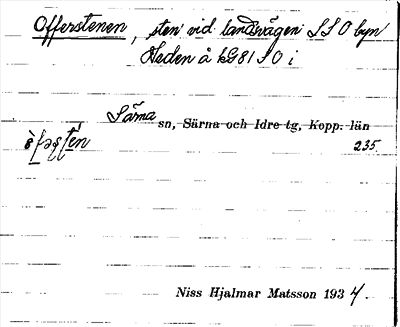 Offerstenen, sten vid landsvägen SSO byn
Heden å kG 81 SO i
Särna sn, Särna och Idre tg, Kopp. län
235.
Niss Hjalmar Matsson 1934.